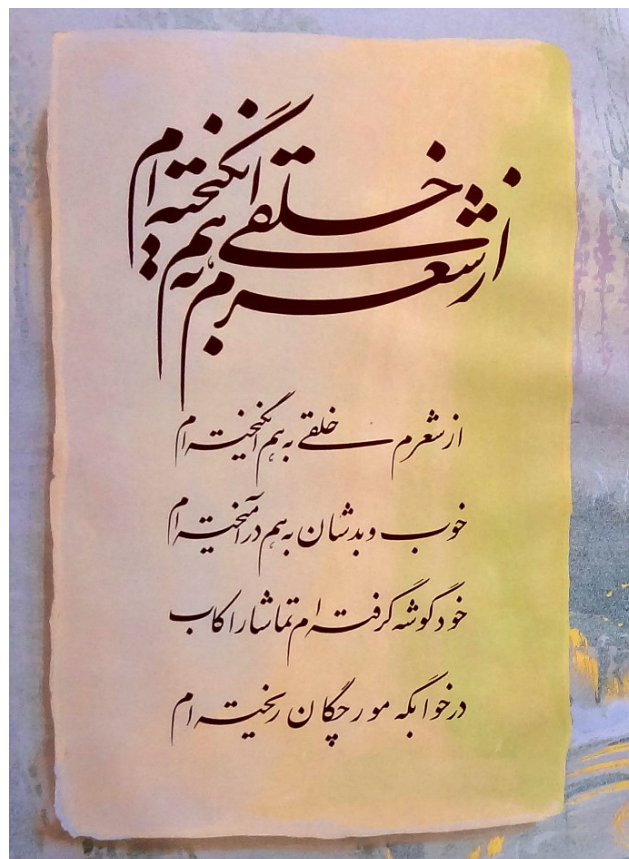 از شعرم خلقی به هم انگیخته‌ام
از شعرم خلقی به هم انگیخته‌ام
خوب و بدشان به هم درآمیخته‌ام
خود گوشه گرفته‌ام تماشا را کاب
در خوابگه مورچگان ریخته‌ام